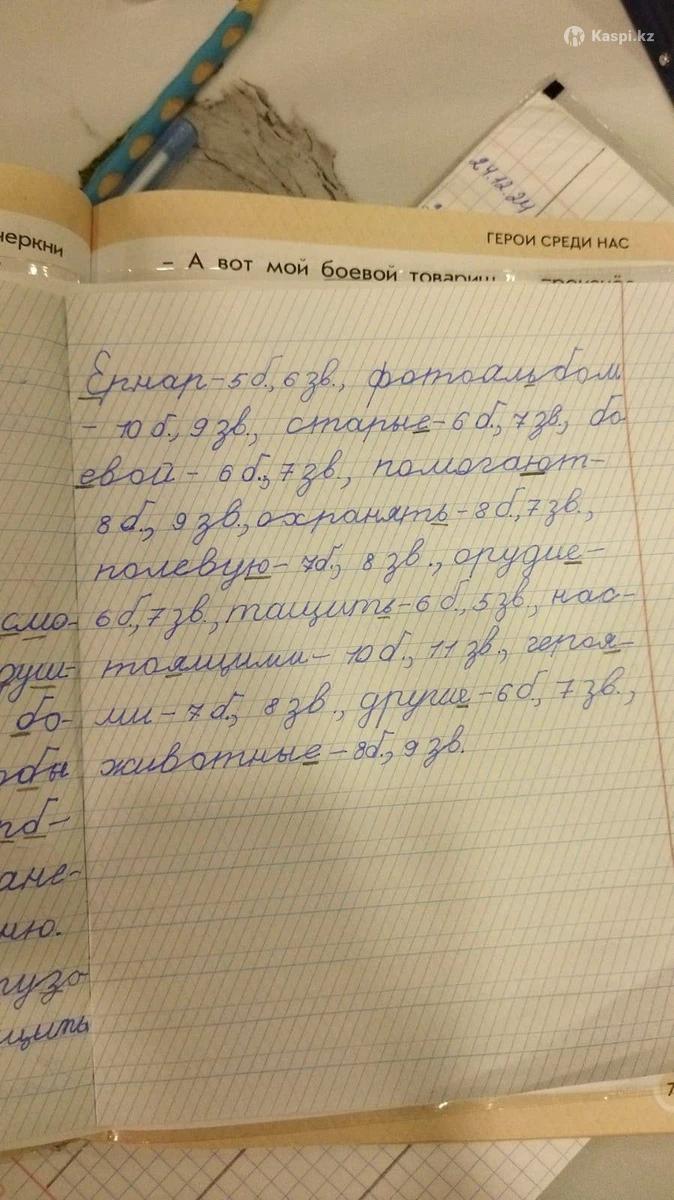 Kaspi.kz
24.12.24
черкни
ГЕРОИ СРЕДИ НАС
– А вот мой боевой товарищ
Ернар – 5 б., 6 зв., фотоальбом
– 10 б., 9 зв., старые – 6 б., 7 зв., бо
евой – 6 б., 7 зв., помогают –
8 б., 9 зв., охранять – 8 б., 7 зв.,
полевую – 7 б., 8 зв., орудие –
смо- 6 б., 7 зв., тащить – 6 б., 5 зв., нас-
руш- тоящими – 10 б., 11 зв., героя-
бо- ми – 7 б., 8 зв., другие – 6 б., 7 зв.,
обы животные – 8 б., 9 зв.
рб-
ане-
ию.
гузо-
щить
7